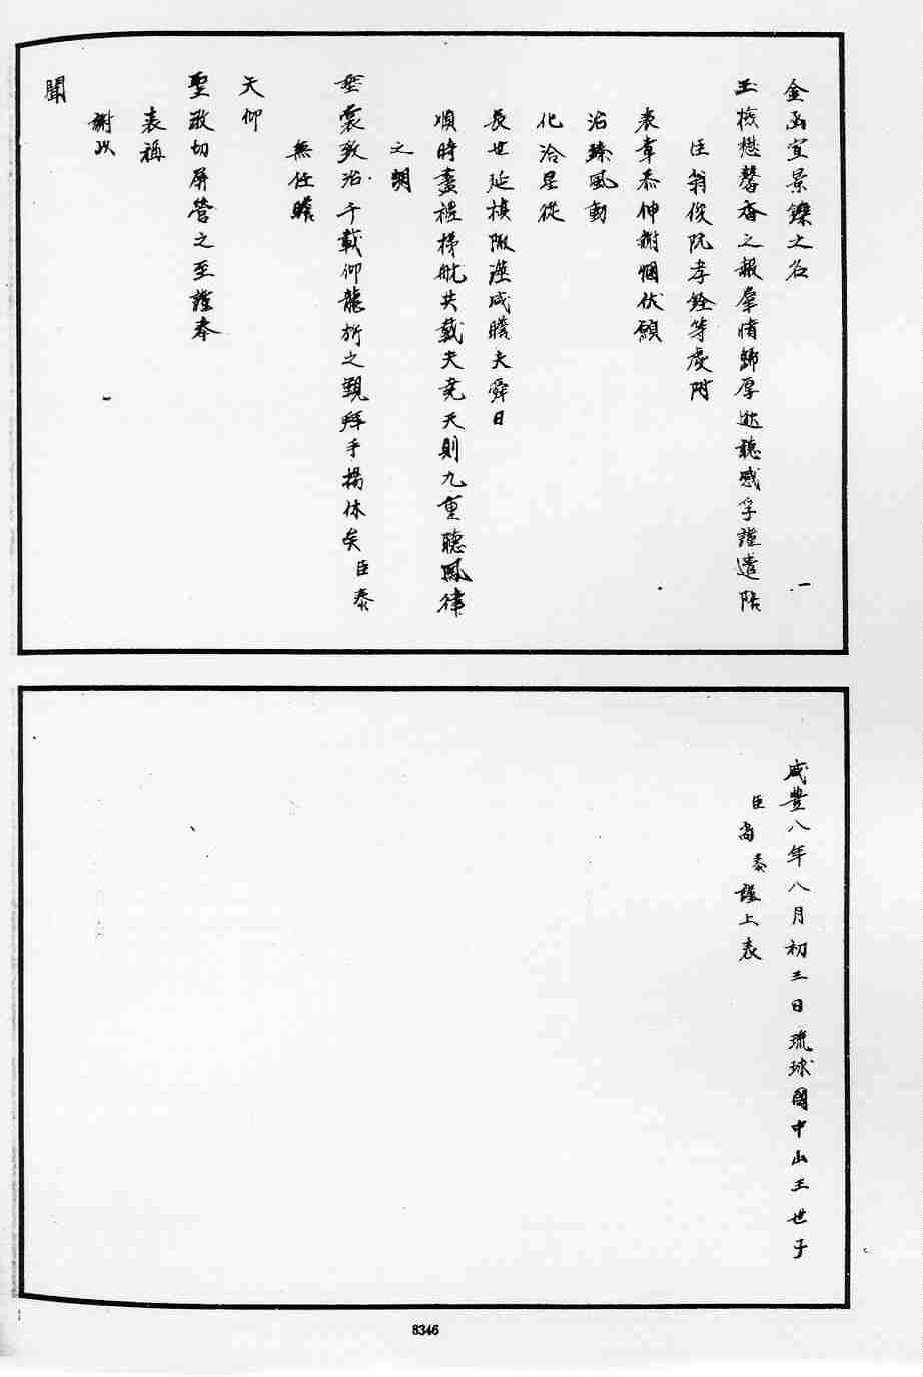 金函宣景鑠之名
玉檢懋馨香之報羣情歸厚逖聽咸孚謹遣陪
臣翁俊阮孝銓等虔附
表章恭伸謝悃伏願
治臻風動
化洽星從
長世延禎陬澨咸瞻夫舜日
順時盡禮梯航共戴夫堯天則九重聽鳳律
之調
垂裳致治千載仰龍旂之觀拜手揚休矣臣泰
無任瞻
天仰
聖激切屏營之至謹奉
表稱
謝以
聞
咸豐八年八月初三日琉球國中山王世子
臣尚泰謹上表
8346